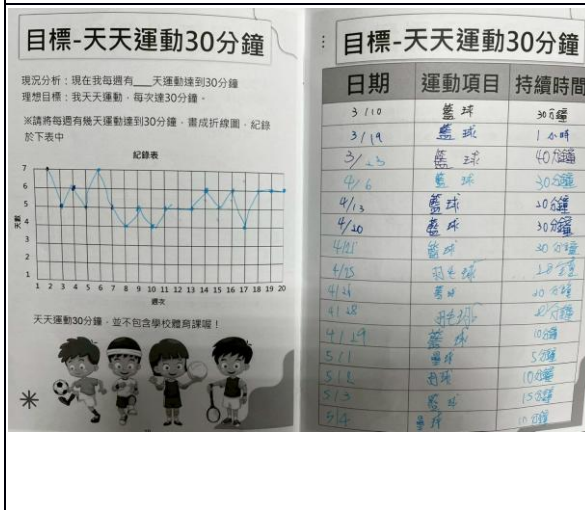 目標-天天運動30分鐘
現況分析：現在我每週有___天運動達到30分鐘
理想目標：我天天運動，每次達30分鐘。
※請將每週有幾天運動達到30分鐘，畫成折線圖，紀錄
於下表中
紀錄表
7
6
5
4
3
2
1
天數
1 2 3 4 5 6 7 8 9 10 11 12 13 14 15 16 17 18 19 20
週次
天天運動30分鐘，並不包含學校體育課喔！
目標-天天運動30分鐘
日期 運動項目 持續時間
3/10 籃球 30分鐘
3/19 籃球 1小時
3/23 籃球 40分鐘
4/6 籃球 30分鐘
4/13 籃球 20分鐘
4/20 籃球 30分鐘
4/21 籃球 20分鐘
4/25 羽毛球
籃球 20分鐘
4/28 羽毛球
4/29 籃球 10分鐘
5/1 5分鐘
5/2 10分鐘
5/3 籃球 15分鐘
5/4 10分鐘